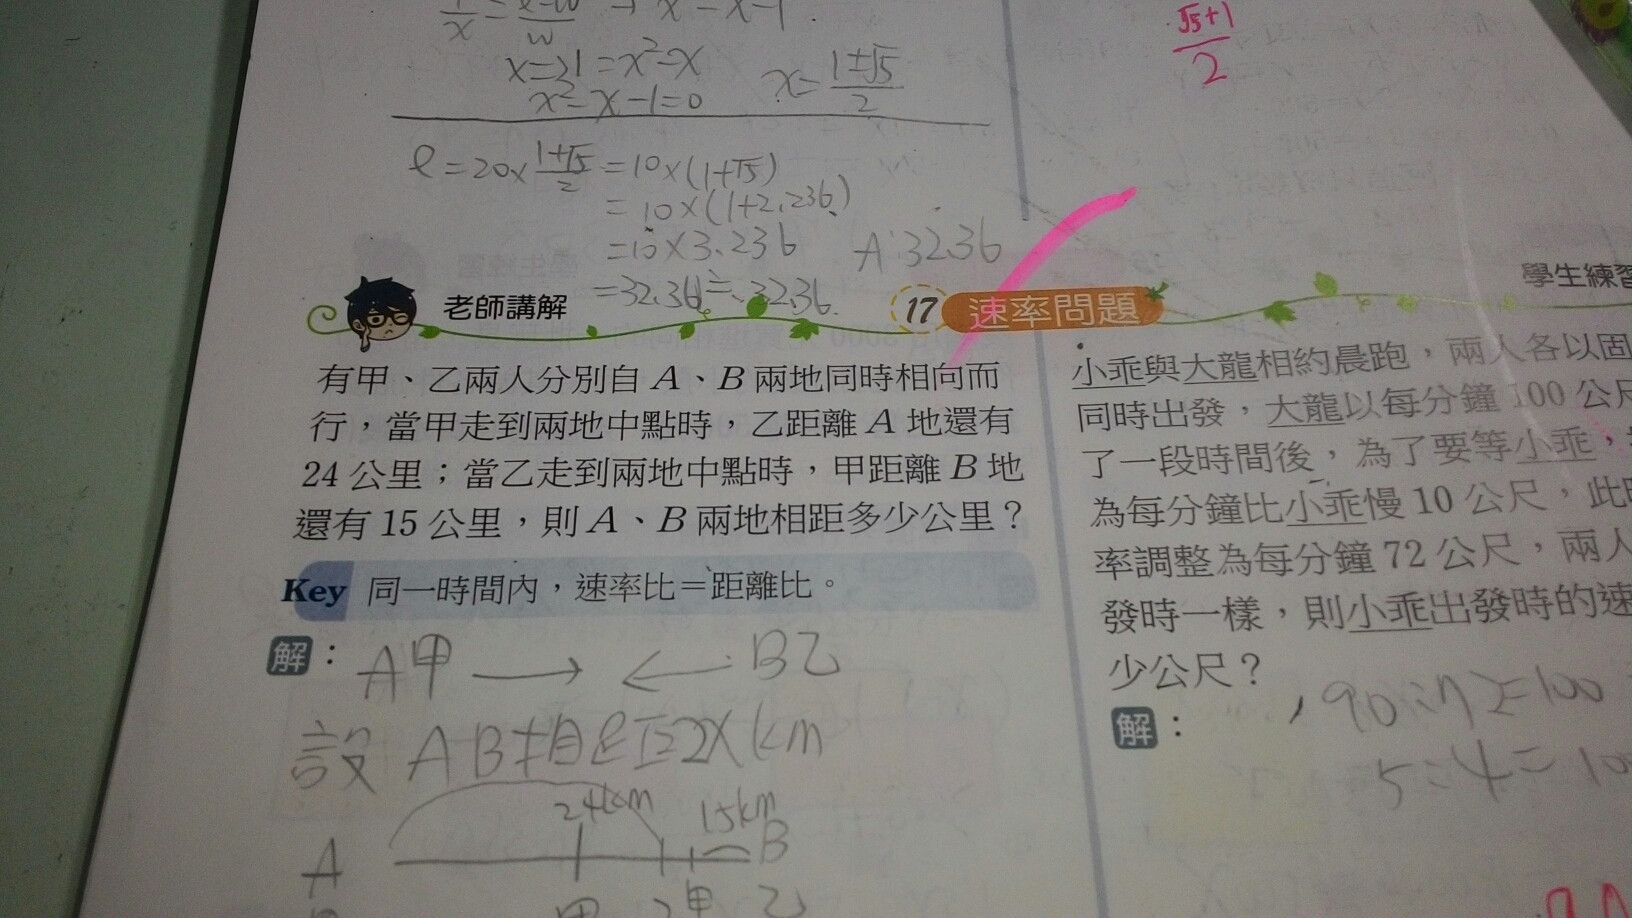 x=>1=x²-x
x²-x-1=0
x=1±√5/2
√5+1/2
l=20×1+√5/2=10×(1+√5)
=10×(1+2.236)
=10×3.236
A:32.36
老師講解
17 速率問題
學生練習
有甲、乙兩人分別自 A、B 兩地同時相向而
行，當甲走到兩地中點時，乙距離 A 地還有
24 公里；當乙走到兩地中點時，甲距離 B 地
還有 15 公里，則 A、B 兩地相距多少公里？
Key 同一時間內，速率比＝距離比。
解：
A甲 → ← B乙
設 AB相距2x km
24km
15km
A
B
甲
乙
小乖與大龍相約晨跑，兩人各以固
同時出發，大龍以每分鐘 100 公尺
了一段時間後，為了要等小乖，
為每分鐘比小乖慢 10 公尺，此時
率調整為每分鐘 72 公尺，兩人
發時一樣，則小乖出發時的速
少公尺？
解：
90:72=100
5:4=10